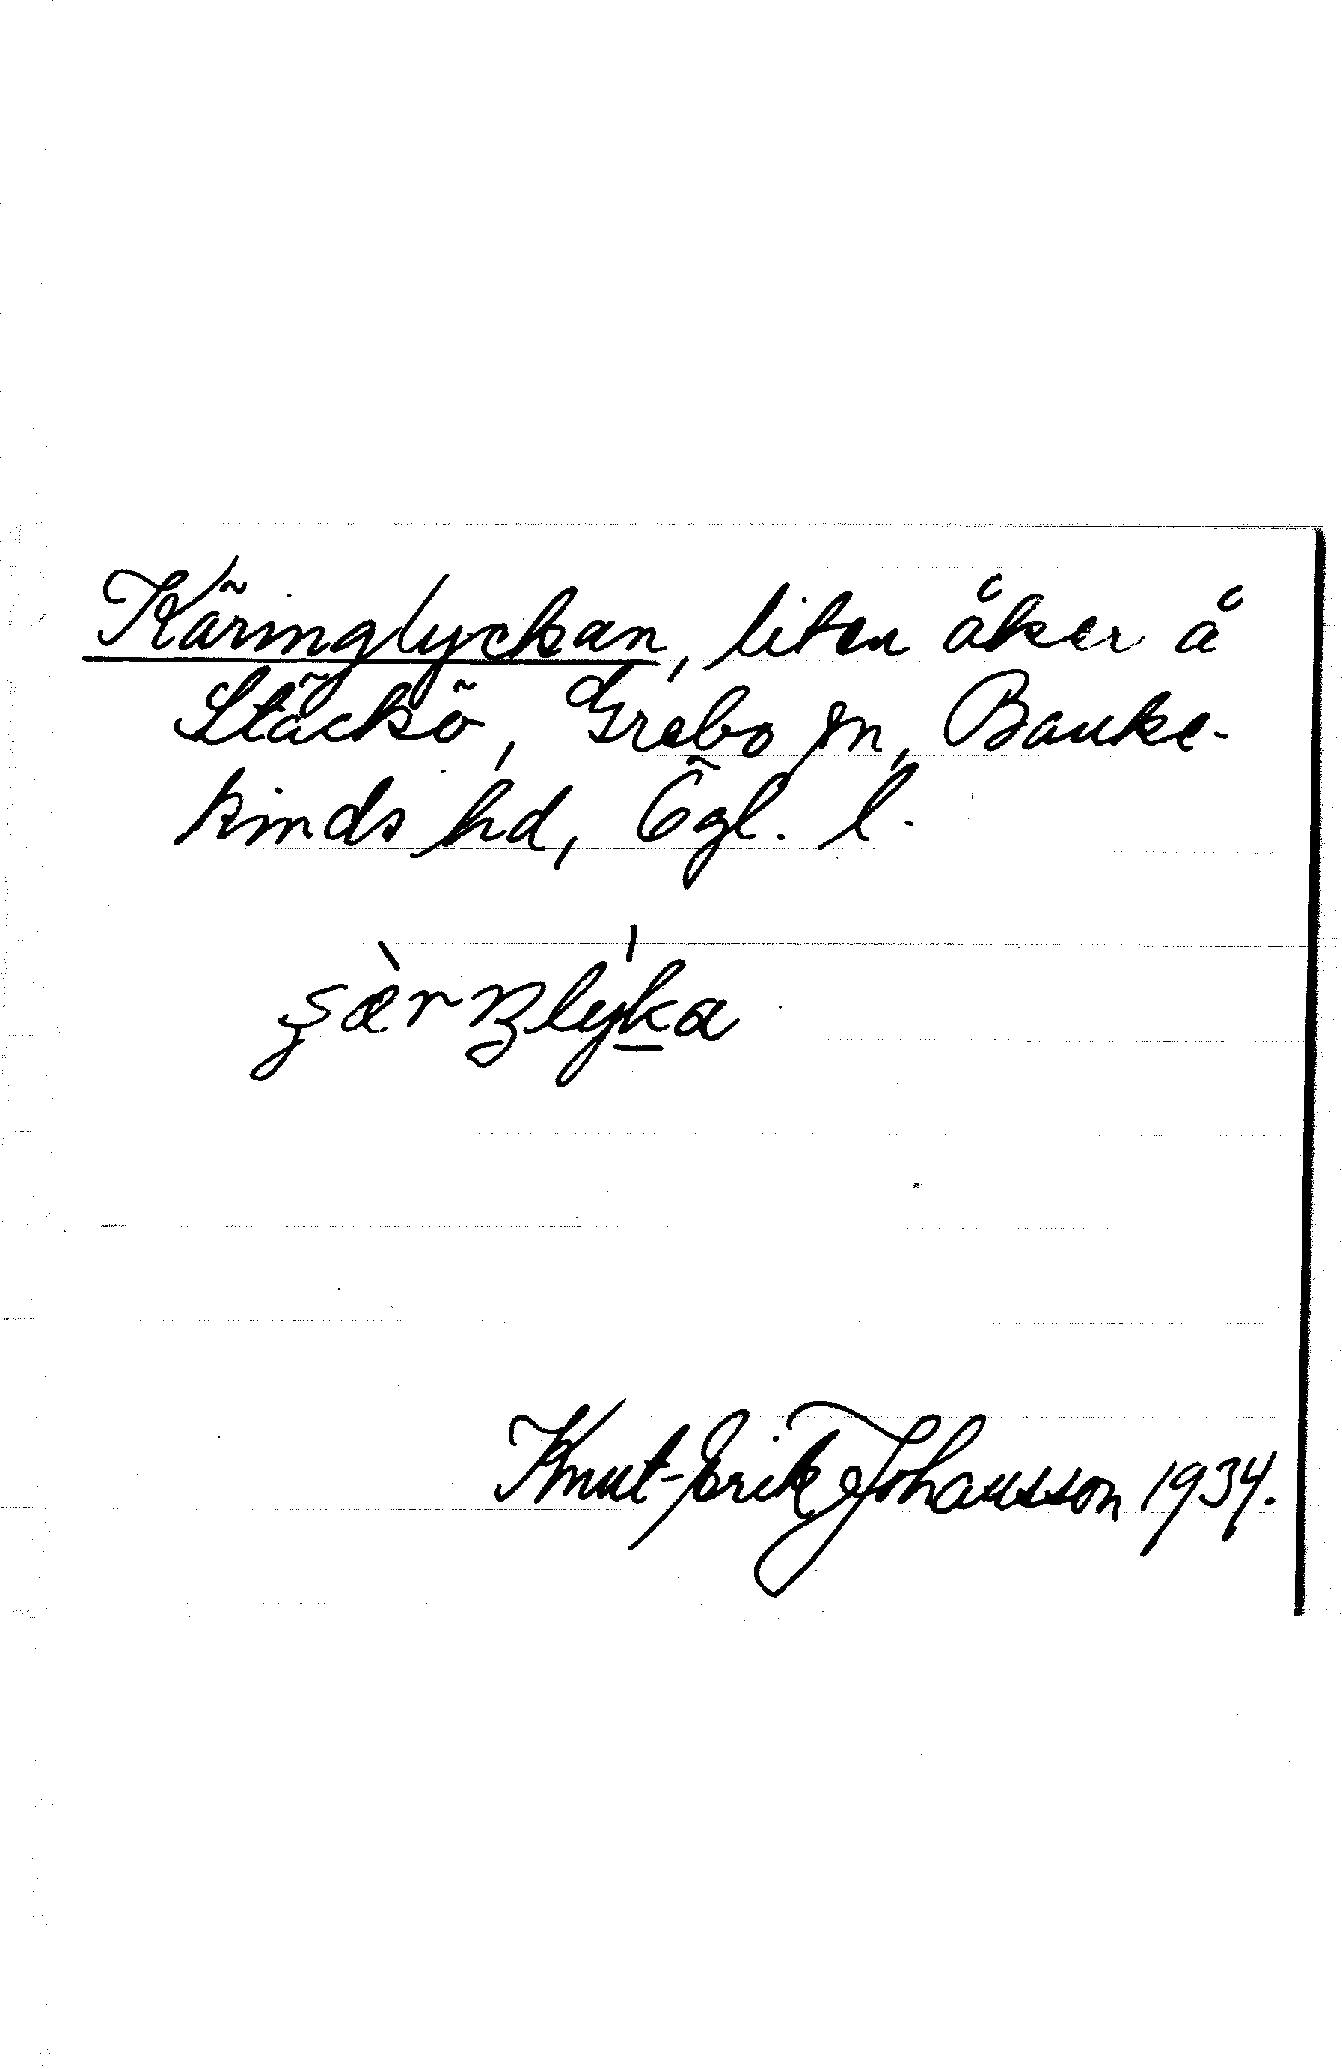 Käringlyckan, liten åker å
Stäckö, Grebo sn, Banke-
kinds hd, Ögl. l.
Knut-Erik Johansson 1934.